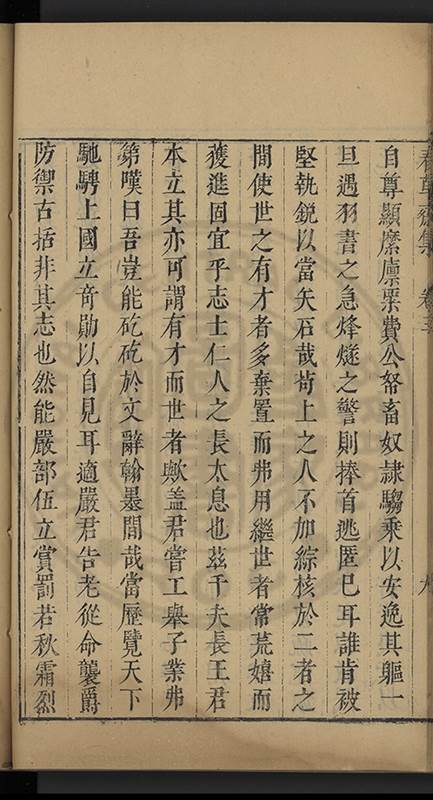 春草齋集 卷 九
自尊顯縻廪粟費公帑畜奴隷騶乘以安逸其軀一
旦遇羽書之急烽燧之警則捧首逃匿已耳誰肯被
堅執銳以當矢石哉苟上之人不加綜核於二者之
間使世之有才者多棄置而弗用繼世者常荒嬉而
獲進固宜乎志士仁人之長太息也茲千夫長王君
本立其亦可謂有才而世者歟盖君嘗工舉子業弗
第嘆曰吾豈能矻矻於文辭翰墨間哉當歷覽天下
馳騁上國立奇勛以自見耳適嚴君告老從命襲爵
防禦古括非其志也然能嚴部伍立賞罰若秋霜烈